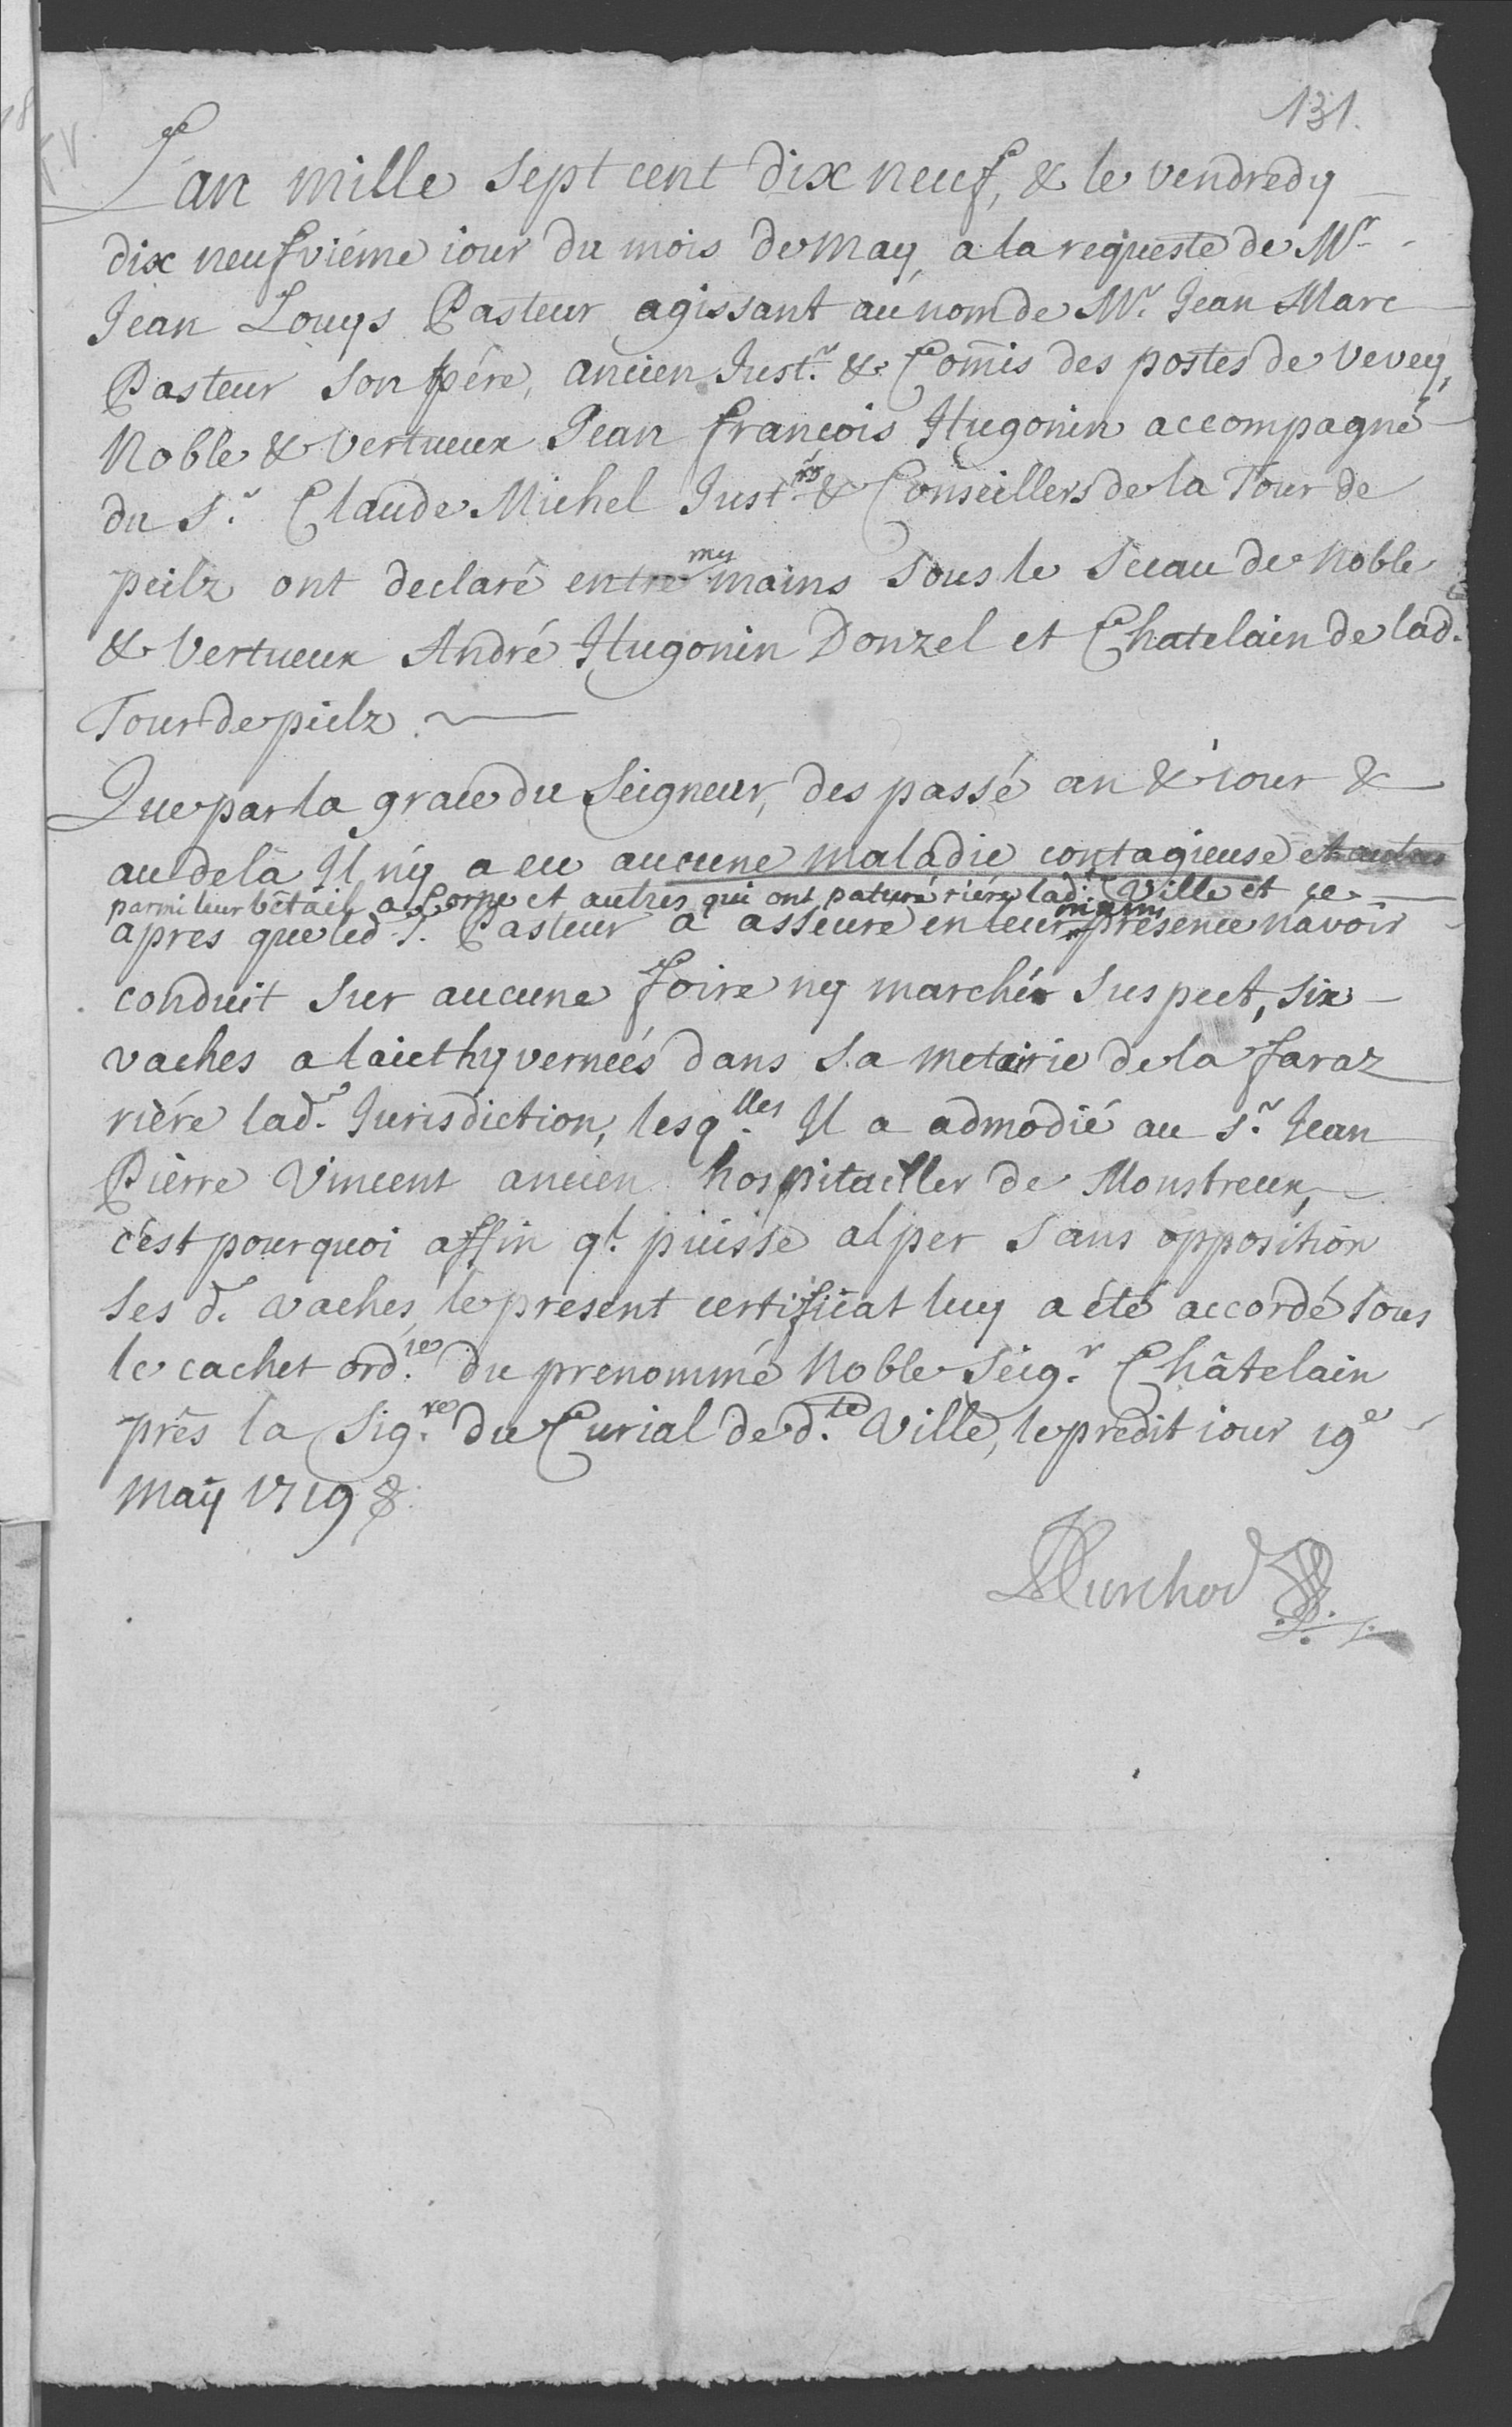 131.
L'an mille sept cent dix neuf, & le vendredy
dix neufviéme iour du mois de May, a la requeste de Mr.
Jean Louys Pasteur agissant au nom de Mr. Jean Marc
Pasteur son pére, ancien Just.r & Com̄is des postes de Vevey,
Noble & vertueux Jean françois Hugonin accompagné
du S.r Claude Michel Just.rs & Conseillers de la Tour de
peilz ont declaré entre my mains sous le Sceau de Noble
& Vertueux André Hugonin Donzel et Chatelain de lad.
Tour de pielz.
Que par la grace du Seigneur, des passé an & iour &
au delà Il n'y a eu aucune maladie contagieuse et autres
parmi leur bétail a Corne et autres qui ont paturé riére lad.te Ville et ce
apres que led. S.r Pasteur a asseuré en leur mains présence n'avoir
conduit sur aucune foire ny marché suspect, six
vaches a laict hyverneés dans sa metairie de la faraz
riére lad.e Jurisdiction, lesq.lles Il a admodié au S.r Jean
Piérre Vincent ancien hospitaller de Monstreux,
c'est pourquoi affin q.l puisse alper sans opposition
ses d. vaches, le present certificat luy a été accordé sous
le cachet ord.re du prenommé Noble Seig.r Châtelain
prés la Sig.re du Curial de d.te Ville, le predit iour 19e
Maÿ 1719 &.